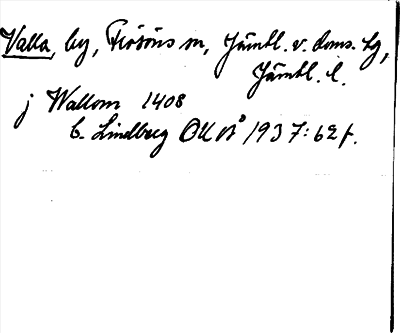 Valla, by, Frösöns sn, Jämtl. v. doms. tg,
Jämtl. l.
j Wallom 1408
C. Lindberg OUÅ 1937: 62 f.